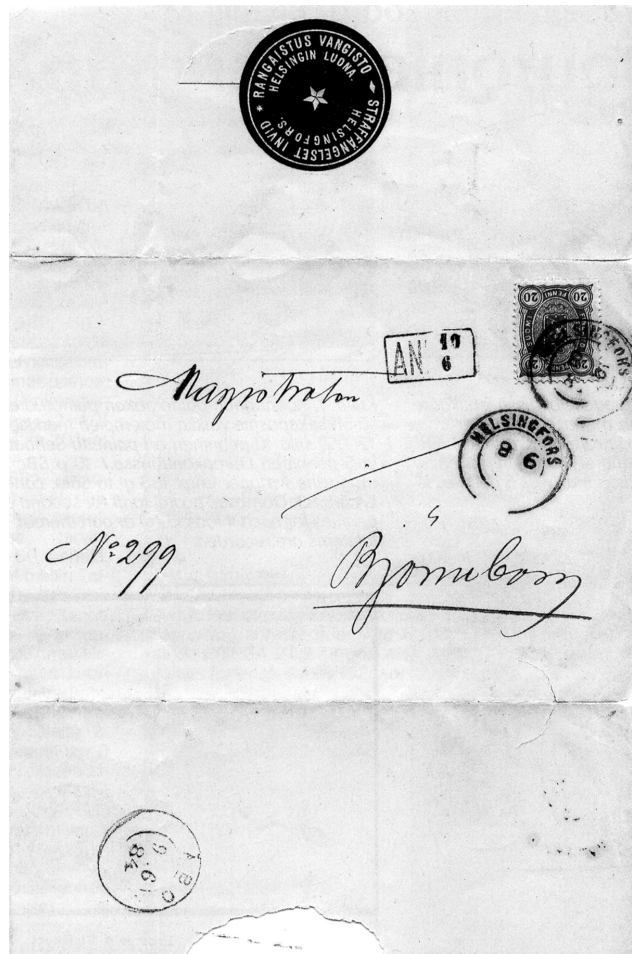 RANGAISTUS VANGISTO
HELSINGIN LUONA.
STRAFFÄNGELSET INVID
HELSINGFORS.
20 20
SUOMI
PENNI
HELSINGFORS
AN 10
6
Magistraten
HELSINGFORS
8 6
i
Nº 299
Björneborg
ÅBO
9 6
84